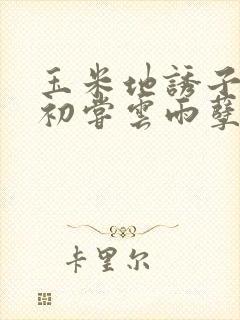 玉米地誘子
初嘗雲雨孽
卡里尔